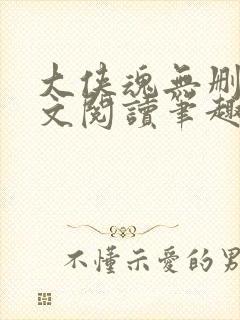 大侠魂無删
文閱讀筆趣
不懂示愛的男